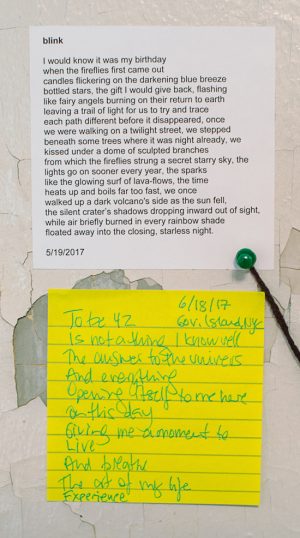 blink
I would know it was my birthday
when the fireflies first came out
candles flickering on the darkening blue breeze
bottled stars, the gift I would give back, flashing
like fairy angels burning on their return to earth
leaving a trail of light for us to try and trace
each path different before it disappeared, once
we were walking on a twilight street, we stepped
beneath some trees where it was night already, we
kissed under a dome of sculpted branches
from which the fireflies strung a secret starry sky, the
lights go on sooner every year, the sparks
like the glowing surf of lava-flows, the time
heats up and boils far too fast, we once
walked up a dark volcano's side as the sun fell,
the silent crater's shadows dropping inward out of sight,
while air briefly burned in every rainbow shade
floated away into the closing, starless night.
5/19/2017
6/18/17
Gov. Island, NY
To be 42
Is not a thing I know well
The answer to the univers
And everything
Opening itself to me here
on this day
Giving me a moment to
Live
And breathe
The art of my life
Experience